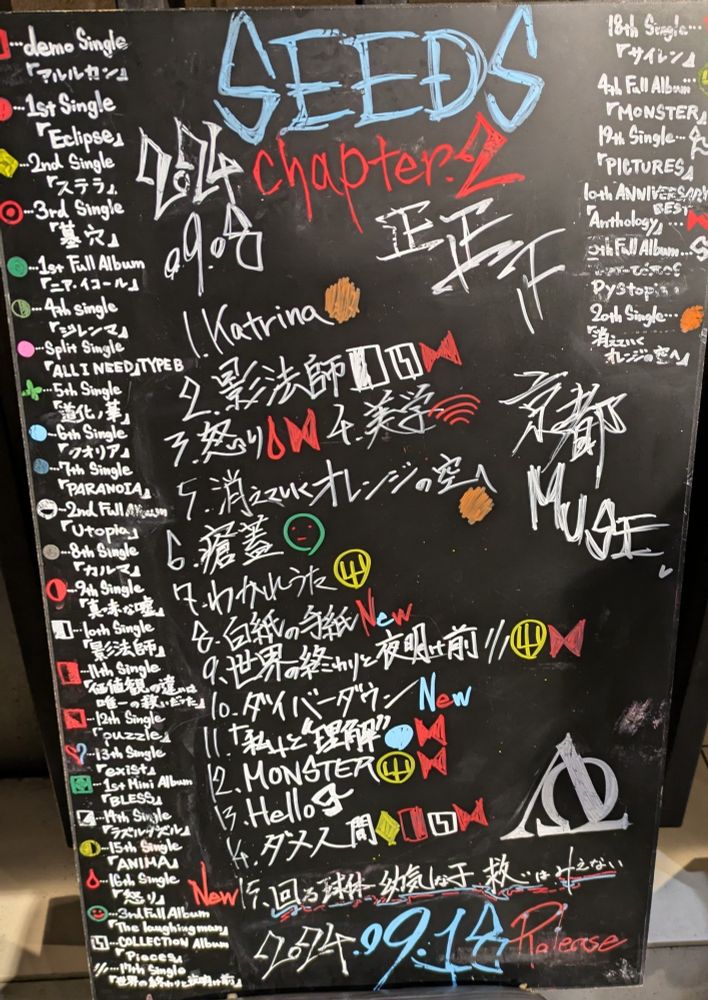 SEEDS
2024 chapter.2
.09.08
正正正
京都
MUSE
1.Katrina
2.影法師
3.怒り 4.美学
5.消えていくオレンジの空へ
6.瘡蓋
7.わかれうた
8.白紙の手紙 New
9.世界の終わりと夜明け前
10.ダイバーダウン New
11.「私」と“理解”
12.MONSTER
13.Hello
14.ダメ人間
New 15.回る球体 幼気な子 救いは
2024.09.18 Release
…demo Single
『アルルカン』
…1st Single
『Eclipse』
…2nd Single
『ステラ』
…3rd Single
『墓穴』
…1st Full Album
『ニア・イコール』
…4th single
『ジレンマ』
…Split Single
『ALL I NEED』TYPE B
…5th Single
『道化ノ華』
…6th Single
『クオリア』
…7th Single
『PARANOIA』
…2nd Full Album
『Utopia』
…8th Single
『カルマ』
…9th Single
『真っ赤な嘘』
…10th Single
『影法師』
…11th Single
『価値観の違いは
唯一の救いだった』
…12th Single
『puzzle』
…13th Single
『exist』
…1st Mini Album
『BLESS』
…14th Single
『ラズルダズル』
…15th Single
『ANIMA』
…16th Single
『怒り』
…3rd Full Album
『The laughing man』
…COLLECTION Album
『Pieces』
…17th Single
『世界の終わりと夜明け前』
18th Single…
『サイレン』
4th Full Album…
『MONSTER』
19th Single…
『PICTURES』
10th ANNIVERSARY
BEST
『Anthology』…
5th Full Album…
Dystopia
20th Single…
『消えていく
オレンジの空へ』